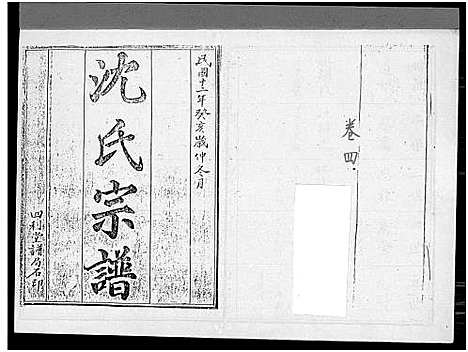 民國十二年癸亥歲仲冬月
沈氏宗譜
四利堂譜局石印
卷四